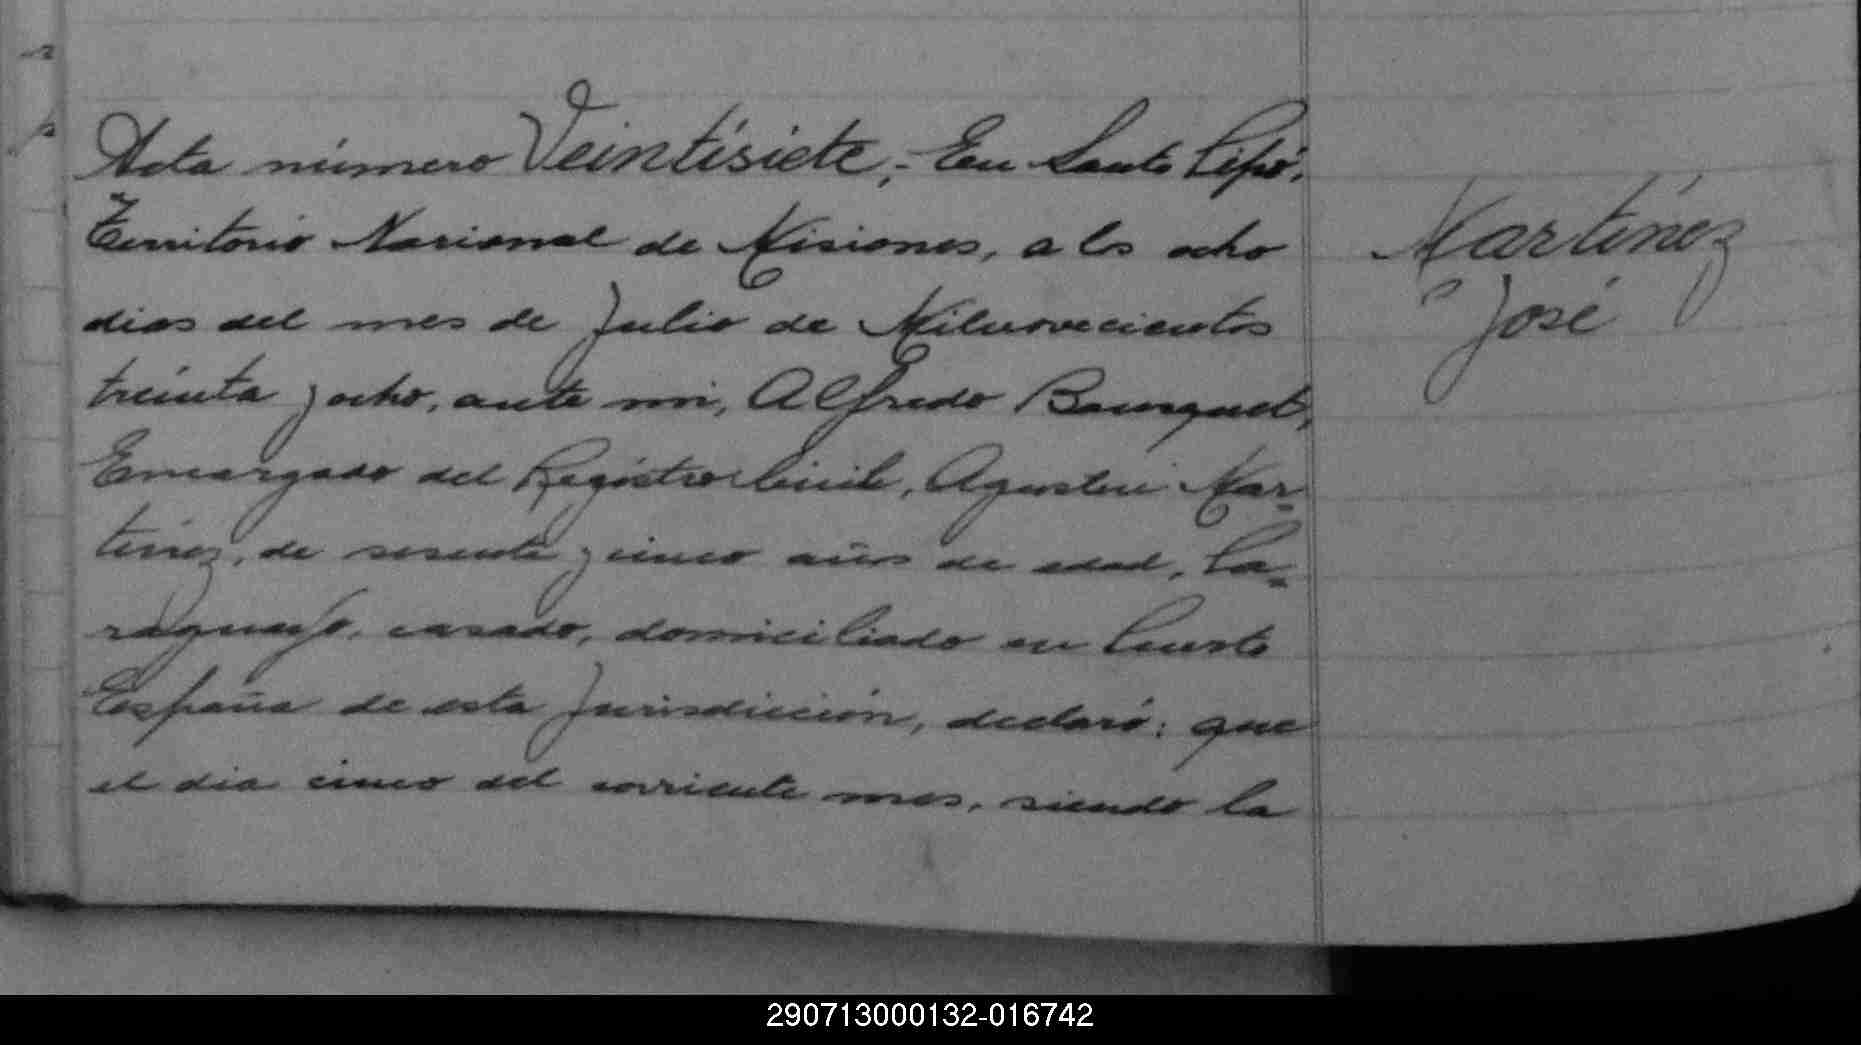 Acta número Veintisiete,- En Santo Pipó,
Territorio Nacional de Misiones, a los ocho
dias del mes de Julio de Milnovecientos
treinta y ocho, ante mi, Alfredo Bousquet,
Encargado del Registro Civil, Agustin Mar-
tinez, de sesenta y cinco años de edad, Pa-
raguayo, casado, domiciliado en Puerto
España de esta Jurisdicción, declaró: que
el dia cinco del corriente mes, siendo la
Martinez
José
290713000132-016742